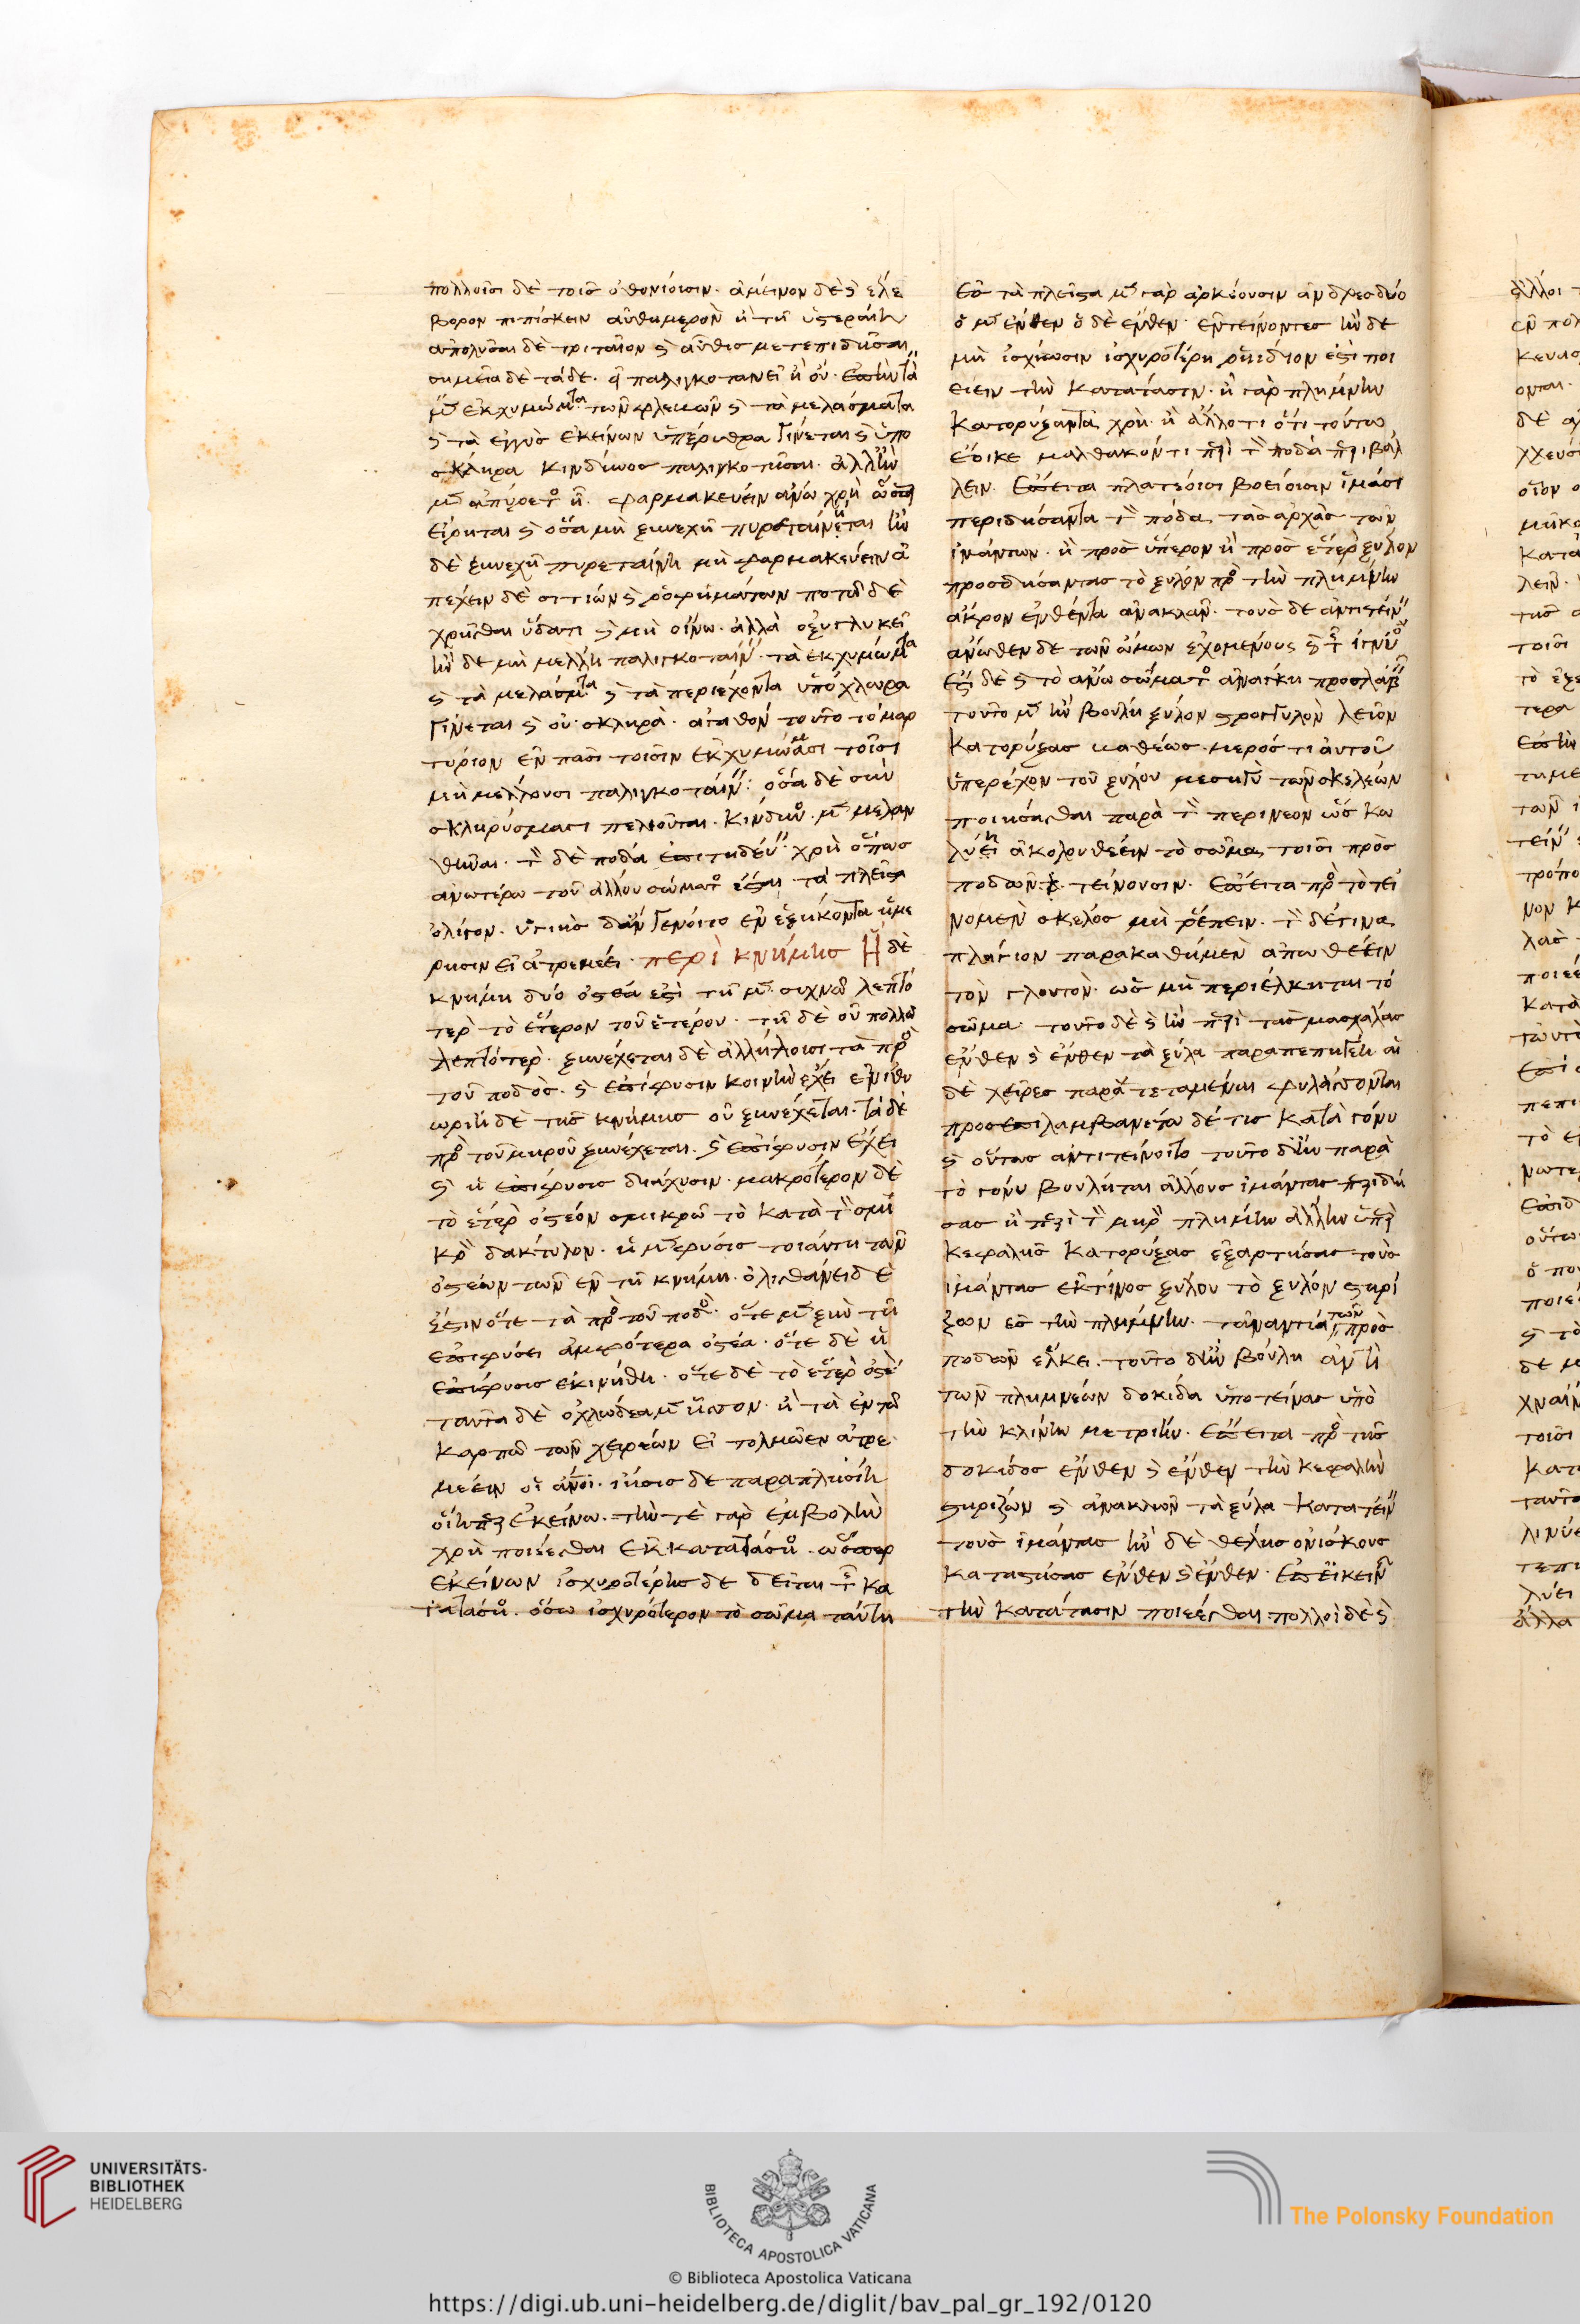 πολλοῖσι δὲ τοῖσ ὀθονίοισιν. ἄμεινον δὲ ϗ ἑλλέ
βορον πιπίσκειν αὐθημερὸν ἢ τῆ ὑστεραίη
ἀπολῦσαι δὲ τριταῖον ϗ αὖθισ μετεπιδῆσαι
σημεῖα δὲ τάδε. εἰ παλιγκοταίνει ἢ οὔ.
ἐκχυμώματα τῶν φλεβῶν ϗ τὰ μελάσματα
ϗ τὰ ἐγγὺσ ἐκείνων ὑπέρυθρα γίνεται ϗ ὑπό
σκληρα κίνδυνοσ παλιγκοτῆσαι. ἀλλ' ἢν
μὲν ἀπύρετοσ ἦ. φαρμακεύειν ἄνω χρὴ ὥσπερ
εἴρηται ϗ ὅσα μὴ ξυνεχῆ πυρεταίνεται ἢν
δὲ ξυνεχῆ πυρεταίνη μὴ φαρμακεύειν ἀ
πέχειν δὲ σιτίων ϗ ῥοφημάτων ποτῶ δὲ
χρῆσθαι ὕδατι ϗ μὴ οἴνω. ἀλλὰ ὀξυγλυκεῖ
ἢν δὲ μὴ μέλλη παλιγκοταίνειν. τὰ ἐκχυμώματα
ϗ τὰ μελάσματα ϗ τὰ περιέχοντα ὑπόχλωρα
γίνεται ϗ οὐ σκληρά. ἀγαθὸν τοῦτο τὸ μαρ
τύριον ἐν πᾶσι τοῖσιν ἐκχυμώμασι τοῖσι
μὴ μέλλουσι παλιγκοταίνειν. ὅσα δὲ σὺν
σκληρύσμασι πελιοῦται. κίνδυνοσ μὲν μελαν
θῆναι. τὸν δὲ πόδα ἐπιτηδεύειν χρὴ ὅπωσ
ἀνωτέρω τοῦ ἄλλου σώματοσ ἔσται τὰ πλεῖστα
ὀλίγον. ὑγιὴσ δ' ἂν γένοιτο ἐν ἑξήκοντα ἡμέ
ρησιν εἰ ἀτρεμέει. περὶ κνήμησ Ἡ δὲ
κνήμη δύο ὀστέα ἐστὶ τῆ μὲν συχνῶ λεπτό
τερον τὸ ἕτερον τοῦ ἑτέρου. τῆ δὲ οὐ πολλῶ
λεπτότερον. ξυνέχεται δὲ ἀλλήλοισι τὰ πρὸσ
τοῦ ποδόσ. ϗ ἐπίφυσιν κοινὴν ἔχει ἐν ἰθυ
ωρίη δὲ τῆσ κνήμησ οὐ ξυνέχεται. τὰ δὲ
πρὸσ τοῦ μηροῦ ξυνέχεται. ϗ ἐπίφυσιν ἔχει
ϗ ἡ ἐπίφυσισ διάφυσιν. μακρότερον δὲ
τὸ ἕτερον ὀστέον σμικρῶ τὸ κατὰ τὸν σμι
κρὸν δάκτυλον. ἡ μὲν φύσισ τοιαύτη τῶν
ὀστέων τῶν ἐν τῆ κνήμη. ὀλισθάνει δὲ
ἔστιν ὅτε τὰ πρὸσ τοῦ ποδόσ. ὅτε μὲν ξὺν τῆ
ἐπιφύσει ἀμφότερα ὀστέα. ὅτε δὲ ἡ
ἐπίφυσισ ἐκινήθη. ὅτε δὲ τὸ ἕτερον ὀστέον
ταῦτα δὲ ὀχλώδεα μὲν ἧσσον. ἢ τὰ ἐν τῶ
καρπῶ τῶν χειρέων εἰ τολμῶεν ἀτρε
μέειν οἱ ἄνοι. ἴησισ δὲ παραπλησίη
οἵη περ ἐκείνων. τήν τε γὰρ ἐμβολὴν
χρὴ ποιέεσθαι ἐκ κατατάσιοσ. ὥσπερ
ἐκείνων ἰσχυροτέρησ δὲ δεῖται τῆσ κα
τατάσιοσ. ὅσω ἰσχυρότερον τὸ σῶμα ταύτη
ἐσ τὰ πλεῖστα μὲν γὰρ ἀρκέουσιν ἄνδρεσ δύο
ὁ μὲν ἔνθεν ὁ δὲ ἔνθεν. ἐντείνοντεσ ἢν δὲ
μὴ ἰσχύωσιν ἰσχυροτέρην ῥηίδιον ἐστὶ ποι
έειν τὴν κατάτασιν. ἢ γὰρ πλήμνην
κατορύξαντα χρὴ. ἢ ἄλλο τι ὅ τι τούτω
ἔοικε μαλθακόν τι περὶ τὸν πόδα περιβάλ
λειν. ἔπειτα πλατέοισι βοείοισιν ἱμᾶσι
περιδήσαντα τὸν πόδα τὰσ ἀρχὰσ τῶν
ἱμάντων. ἢ πρὸσ ὕπερον ἢ πρὸσ ἕτερον ξύλον
προσδήσαντασ τὸ ξύλον πρὸσ τὴν πλήμνην
ἄκρον ἐνθέντα ἀνακλᾶν. τοὺσ δὲ ἀντιτείνειν
ἄνωθεν δὲ τῶν ὤμων ἐχομένουσ ϗ τῆσ ἰγνύησ
ἔστι δὲ ϗ τὸ ἄνω σώματοσ ἀνάγκη προσλαβεῖν
τοῦτο μὲν ἢν βούλη ξύλον στρογγύλον λεῖον
κατορύξασ καθέωσ. μέροσ τι αὐτοῦ
ὑπερέχον τοῦ ξύλου μεσηγὺ τῶν σκελέων
ποιήσασθαι παρὰ τὸν περίνεον ὡσ κω
λύη ἀκολουθέειν τὸ σῶμα τοῖσι πρὸσ
ποδῶν τείνουσιν. ἔπειτα πρὸσ τὸ τει
νόμενον σκέλοσ μὴ ῥέπειν. τὸν δέ τινα
πλάγιον παρακαθήμενον ἀπωθέειν
τὸν γλουτόν. ὡσ μὴ περιέλκηται τὸ
σῶμα τοῦτο δὲ ϗ ἢν περὶ τὰσ μασχάλασ
ἔνθεν ϗ ἔνθεν τὰ ξύλα παραπεπήγη αἱ
δὲ χεῖρεσ παρατεταμέναι φυλάσσονται
προσεπιλαμβανέτω δέ τισ κατὰ γόνυ
ϗ οὕτωσ ἀντιτείνοιτο τοῦτο δ' ἢν παρὰ
τὸ γόνυ βούληται ἄλλουσ ἱμάντασ περιδή
σασ ἢ περὶ τὸν μηρὸν πλήμνην ἄλλην ὑπὲρ
κεφαλῆσ κατορύξασ ἐξαρτήσασ τοὺσ
ἱμάντασ ἔκ τινοσ ξύλου τὸ ξύλον στηρί
ζων ἐσ τὴν πλήμνην. τἀναντία τῶν πρὸσ
ποδῶν ἕλκει. τοῦτο δ' ἢν βούλη ἀντὶ
τῶν πλημνέων δοκίδα ὑποτείνασ ὑπὸ
τὴν κλίνην μετρίην. ἔπειτα πρὸσ τῆσ
δοκίδοσ ἔνθεν ϗ ἔνθεν τὴν κεφαλὴν
στηρίζων ϗ ἀνακλῶν τὰ ξύλα κατατείνειν
τοὺσ ἱμάντασ ἢν δὲ θέλησ ὀνίσκουσ
καταστήσασ ἔνθεν ϗ ἔνθεν.
τὴν κατάτασιν ποιέεσθαι πολλοὶ δὲ ϗ
UNIVERSITÄTS-
BIBLIOTHEK
HEIDELBERG
BIBLIOTECA APOSTOLICA VATICANA
The Polonsky Foundation
© Biblioteca Apostolica Vaticana
https://digi.ub.uni-heidelberg.de/diglit/bav_pal_gr_192/0120